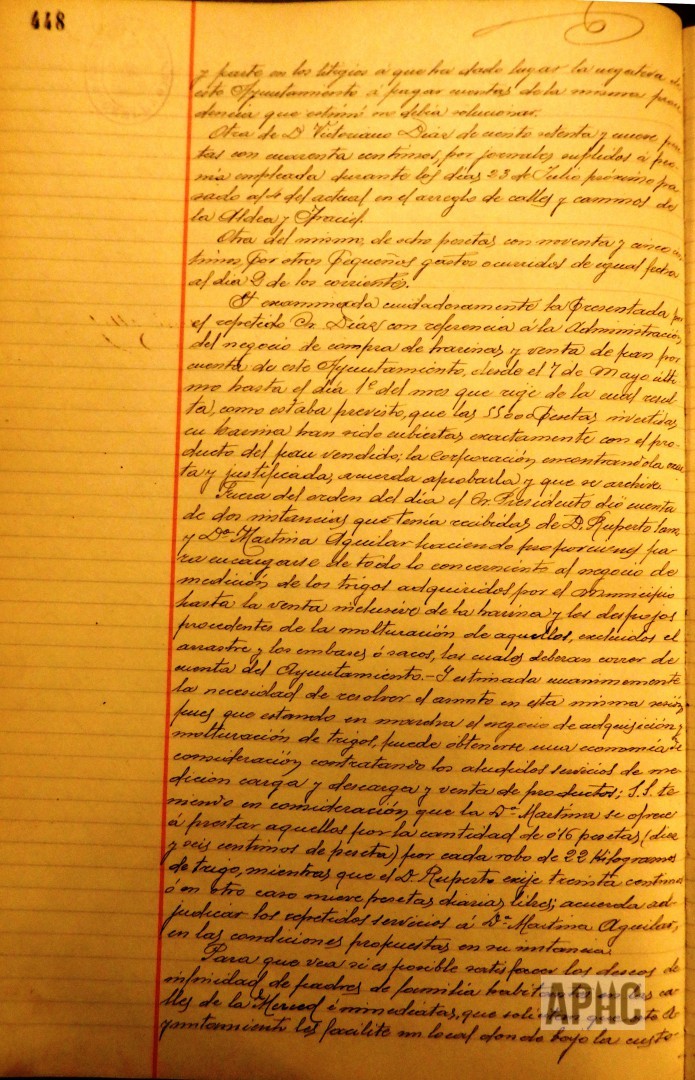 448
y parte en los litigios á que ha dado lugar la negativa de
este Ayuntamiento á pagar cuentas de la misma proce
dencia que estimó no debia solucionar.
Otra de D. Victoriano Díaz de ciento setenta y nueve pese
tas con cuarenta centimos, por jornales suplidos á
empleada durante los dias 23 de Julio próximo pa
sado al 4 del actual en el arreglo de calles y caminos de
la Aldea y
Otra del mismo, de ocho pesetas con noventa y cinco cen
timos por otros pequeños gastos ocurridos de igual fecha
al dia 2 de los corrientes.
Y examinada cuidadosamente la presentada por
el repetido Sr. Díaz con referencia á la Administración
del negocio de compra de harinas y venta de pan por
cuenta de este Ayuntamiento, desde el 7 de Mayo últi
mo hasta el dia 1º del mes que rige de la cual resul
ta, como estaba previsto, que las 55000 Pesetas invertidas
en harina han sido cubiertas exactamente con el pro
ducto del pan vendido; la Corporación encontrandola exac
ta y justificada, acuerda aprobarla y que se archive.
Fuera del orden del día el Sr. Presidente dió cuenta
de dos instancias que tenia recibidas de D. Ruperto
y Dª Martina Aguilar haciendo proposiciones pa
ra encargarse de todo lo concerniente al negocio de
medición de los trigos adquiridos por el Municipio
hasta la venta inclusive de la harina y los despojos
procedentes de la molturación de aquellos, excluidos el
arrastre y los embases ó sacos, los cuales deberan correr de
cuenta del Ayuntamiento.- Y estimada unanimemente
la necesidad de resolver el asunto en esta misma sesión,
pues que estando en marcha el negocio de adquisición y
molturación de trigos, puede obtenerse una economía de
consideración contratando los aludidos servicios de me
dicion carga y descarga y venta de productos; S.S. te
niendo en consideración que la Dª Martina se ofrece
á prestar aquellos por la cantidad de 0'16 pesetas (diez
y seis centimos de peseta) por cada robo de 22 Kilogramos
de trigo, mientras que el D. Ruperto exije treinta centimos
ó en otro caso nueve pesetas diarias libres; acuerda ad
judicar los repetidos servicios á Dª Martina Aguilar,
en las condiciones propuestas en su instancia.
Para que vea si es posible satisfacer los deseos de
infinidad de padres de familia en las ca
lles de la Merced é inmediatas, que
yuntamiento les facilite un local donde bajo la custo
APHC